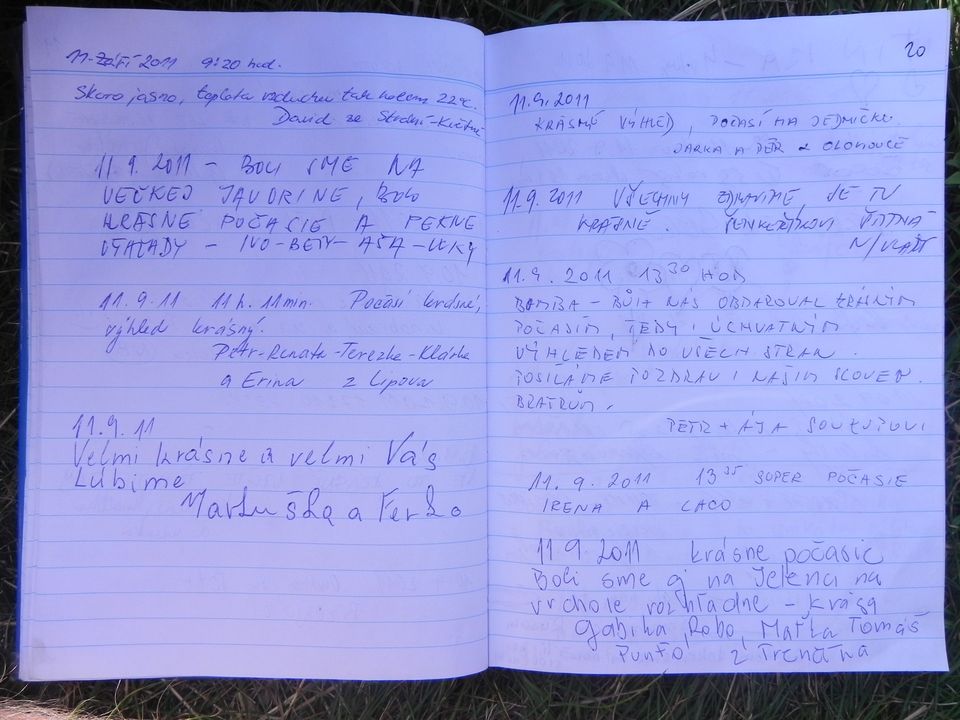 11. září 2011 9:20 hod.
Skoro jasno, teplota vzduchu tak kolem 22°C.
David ze
11.9.2011 – BOLI SME NA
VEČKEJ JAVORINE, BOLO
KRÁSNE POČASIE A PEKNE
VÝHĽADY – IVO-BETY-
11.9.11 11h. 11min. Počasí krásné,
výhled krásný.
Petr-Renata-Terezka-Klárka
a Erina z Lipova
11.9.11
Velmi krásne a velmi Vás
Lubime
Martuška a Ferko
20
11.9.2011
KRÁSNÝ VÝHLED, POČASÍ NA JEDNIČKU
JARKA A PETR Z OLOMOUCE
11.9.2011 VŠECHNY ZDRAVÍME, JE TU
KRÁSNĚ.
11.9.2011 13 30 HOD
BOMBA – BŮH NÁS OBDAROVAL KRÁSNÝM
POČASÍM, TEDY I ÚCHVATNÝM
VÝHLEDEM DO VŠECH STRAN.
POSÍLÁME POZDRAV I NAŠIM SLOVEN.
BRATRŮM.
PETR + ÁJA SOUKUPOVI
11.9.2011 13 35 SUPER POČASIE
IRENA A LACO
11.9.2011 krásne počasie
Boli sme aj na Jelenci na
vrchole rozhľadne – krása
Gabika, Robo, Maťka Tomáš
Punťo z Trenčína